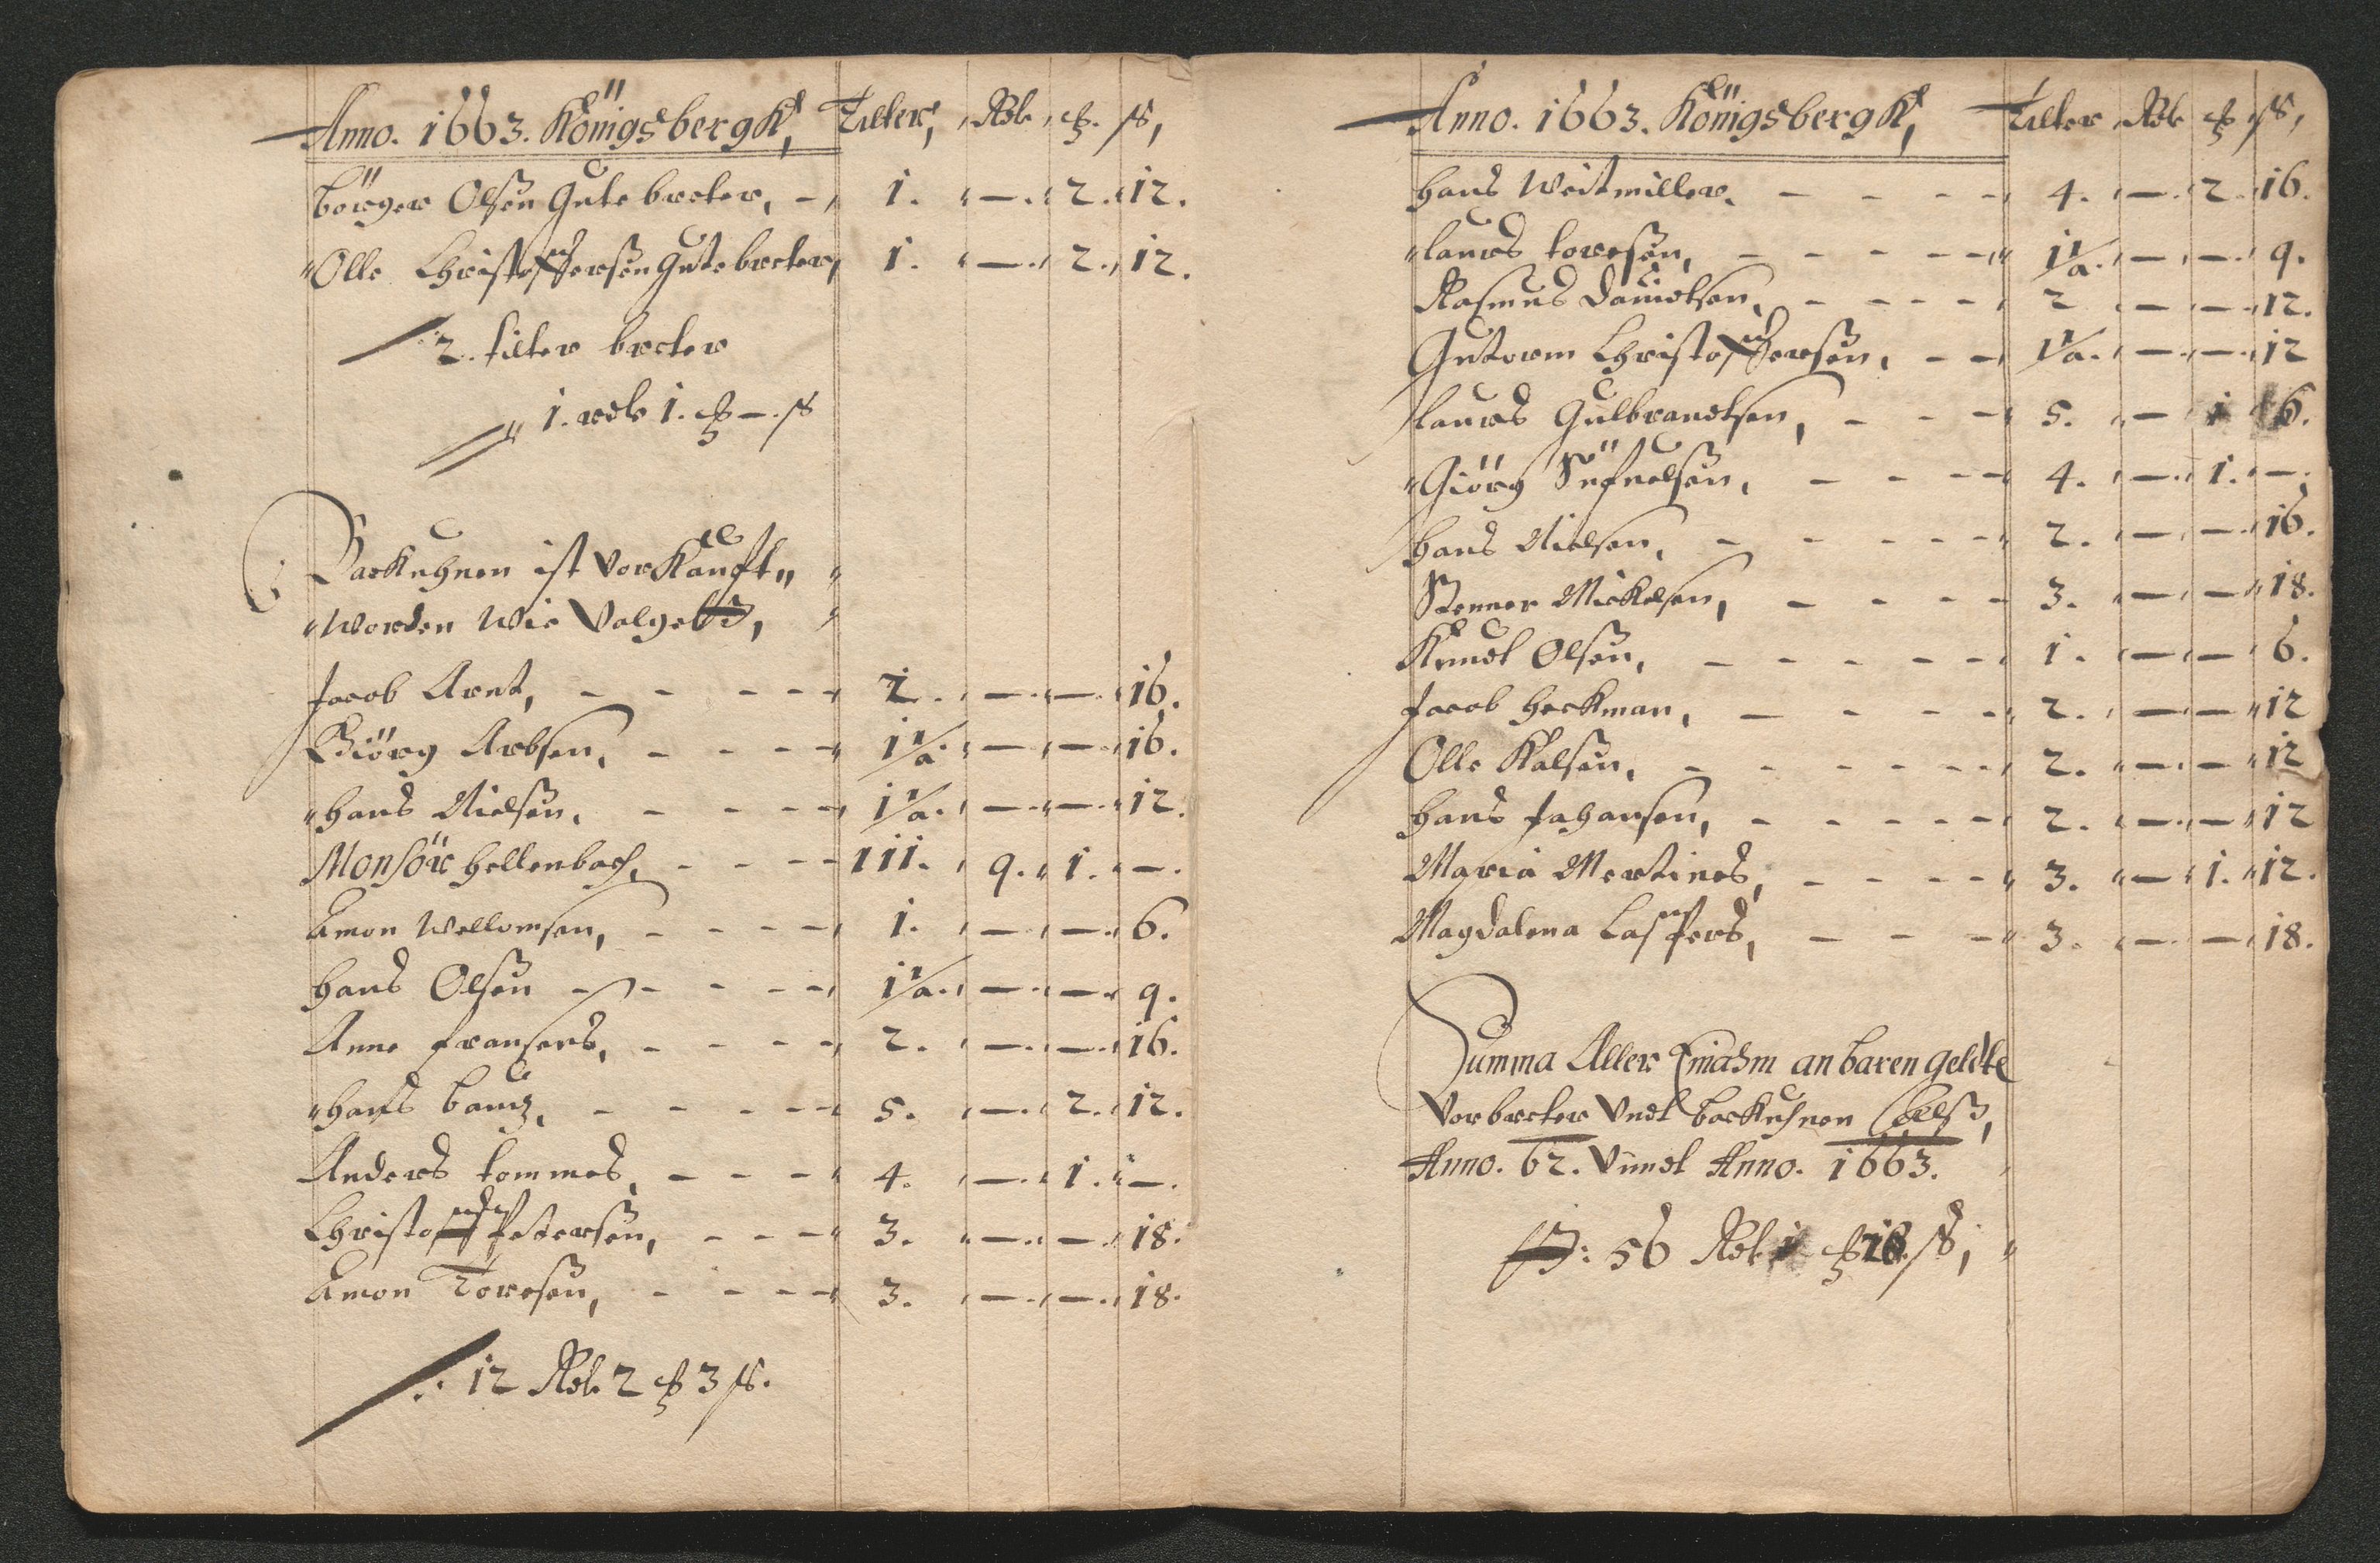 Anno. 1663. Königsbergk, Tilter, Rdl. ß.
Börger Olsen Gute breter, 1. — 2. 12.
Olle Christoffersen Gute breter, 1. — 2. 12.
2. tilter breter
1. rdlr 1. — ß
Backuhnen ist vorKaufft
worden Wie Volget,
Jacob Arent, 2. — — 16.
Giörg Arbsen, 1½. — — 16.
hans Nielsen, 1½. — — 12.
Monsör hellenbach, 111. 9. 1. —.
Amon Wellomsen, 1. — — 6.
hans Olsen 1½. — — 9.
Anne fransers, 2. — — 16.
hans bautz, 5. — 2. 12.
Anders tommes, 4. — 1. —.
Christoff Petersen, 3. — — 18.
Amon Toresen, 3. — — 18.
12 Rdl. 2 3 ß.
Anno. 1663. Königsbergk, Tilter Rdl. ß,
hans Weitmiller, 4. — 2. 16.
laurs toresen, 1½. — — 9.
Rasmus Danielsen, 2 — — 12.
Gutorm Christoffersen, 1½. — — 12
laurs Gulbrandtsen, 5. — 1 6.
Giörg 4. — 1. —.
hans Nielsen, 2. — — 16.
Stenner Mickelsen, 3. — — 18.
Knudt Olsen, 1. — — 6.
Jacob heckman, 2. — — 12
Olle Kalsen, 2. — — 12
hans Johansen, 2. — — 12
Maria Mertines, 3. — 1. 12.
Magdalena Caspers, 3. — — 18.
Summa Aller Einahm an baren geldte
Vor breter Vndt backuhnen
Anno. 62. Vundt Anno. 1663.
56 Rdl. ß,